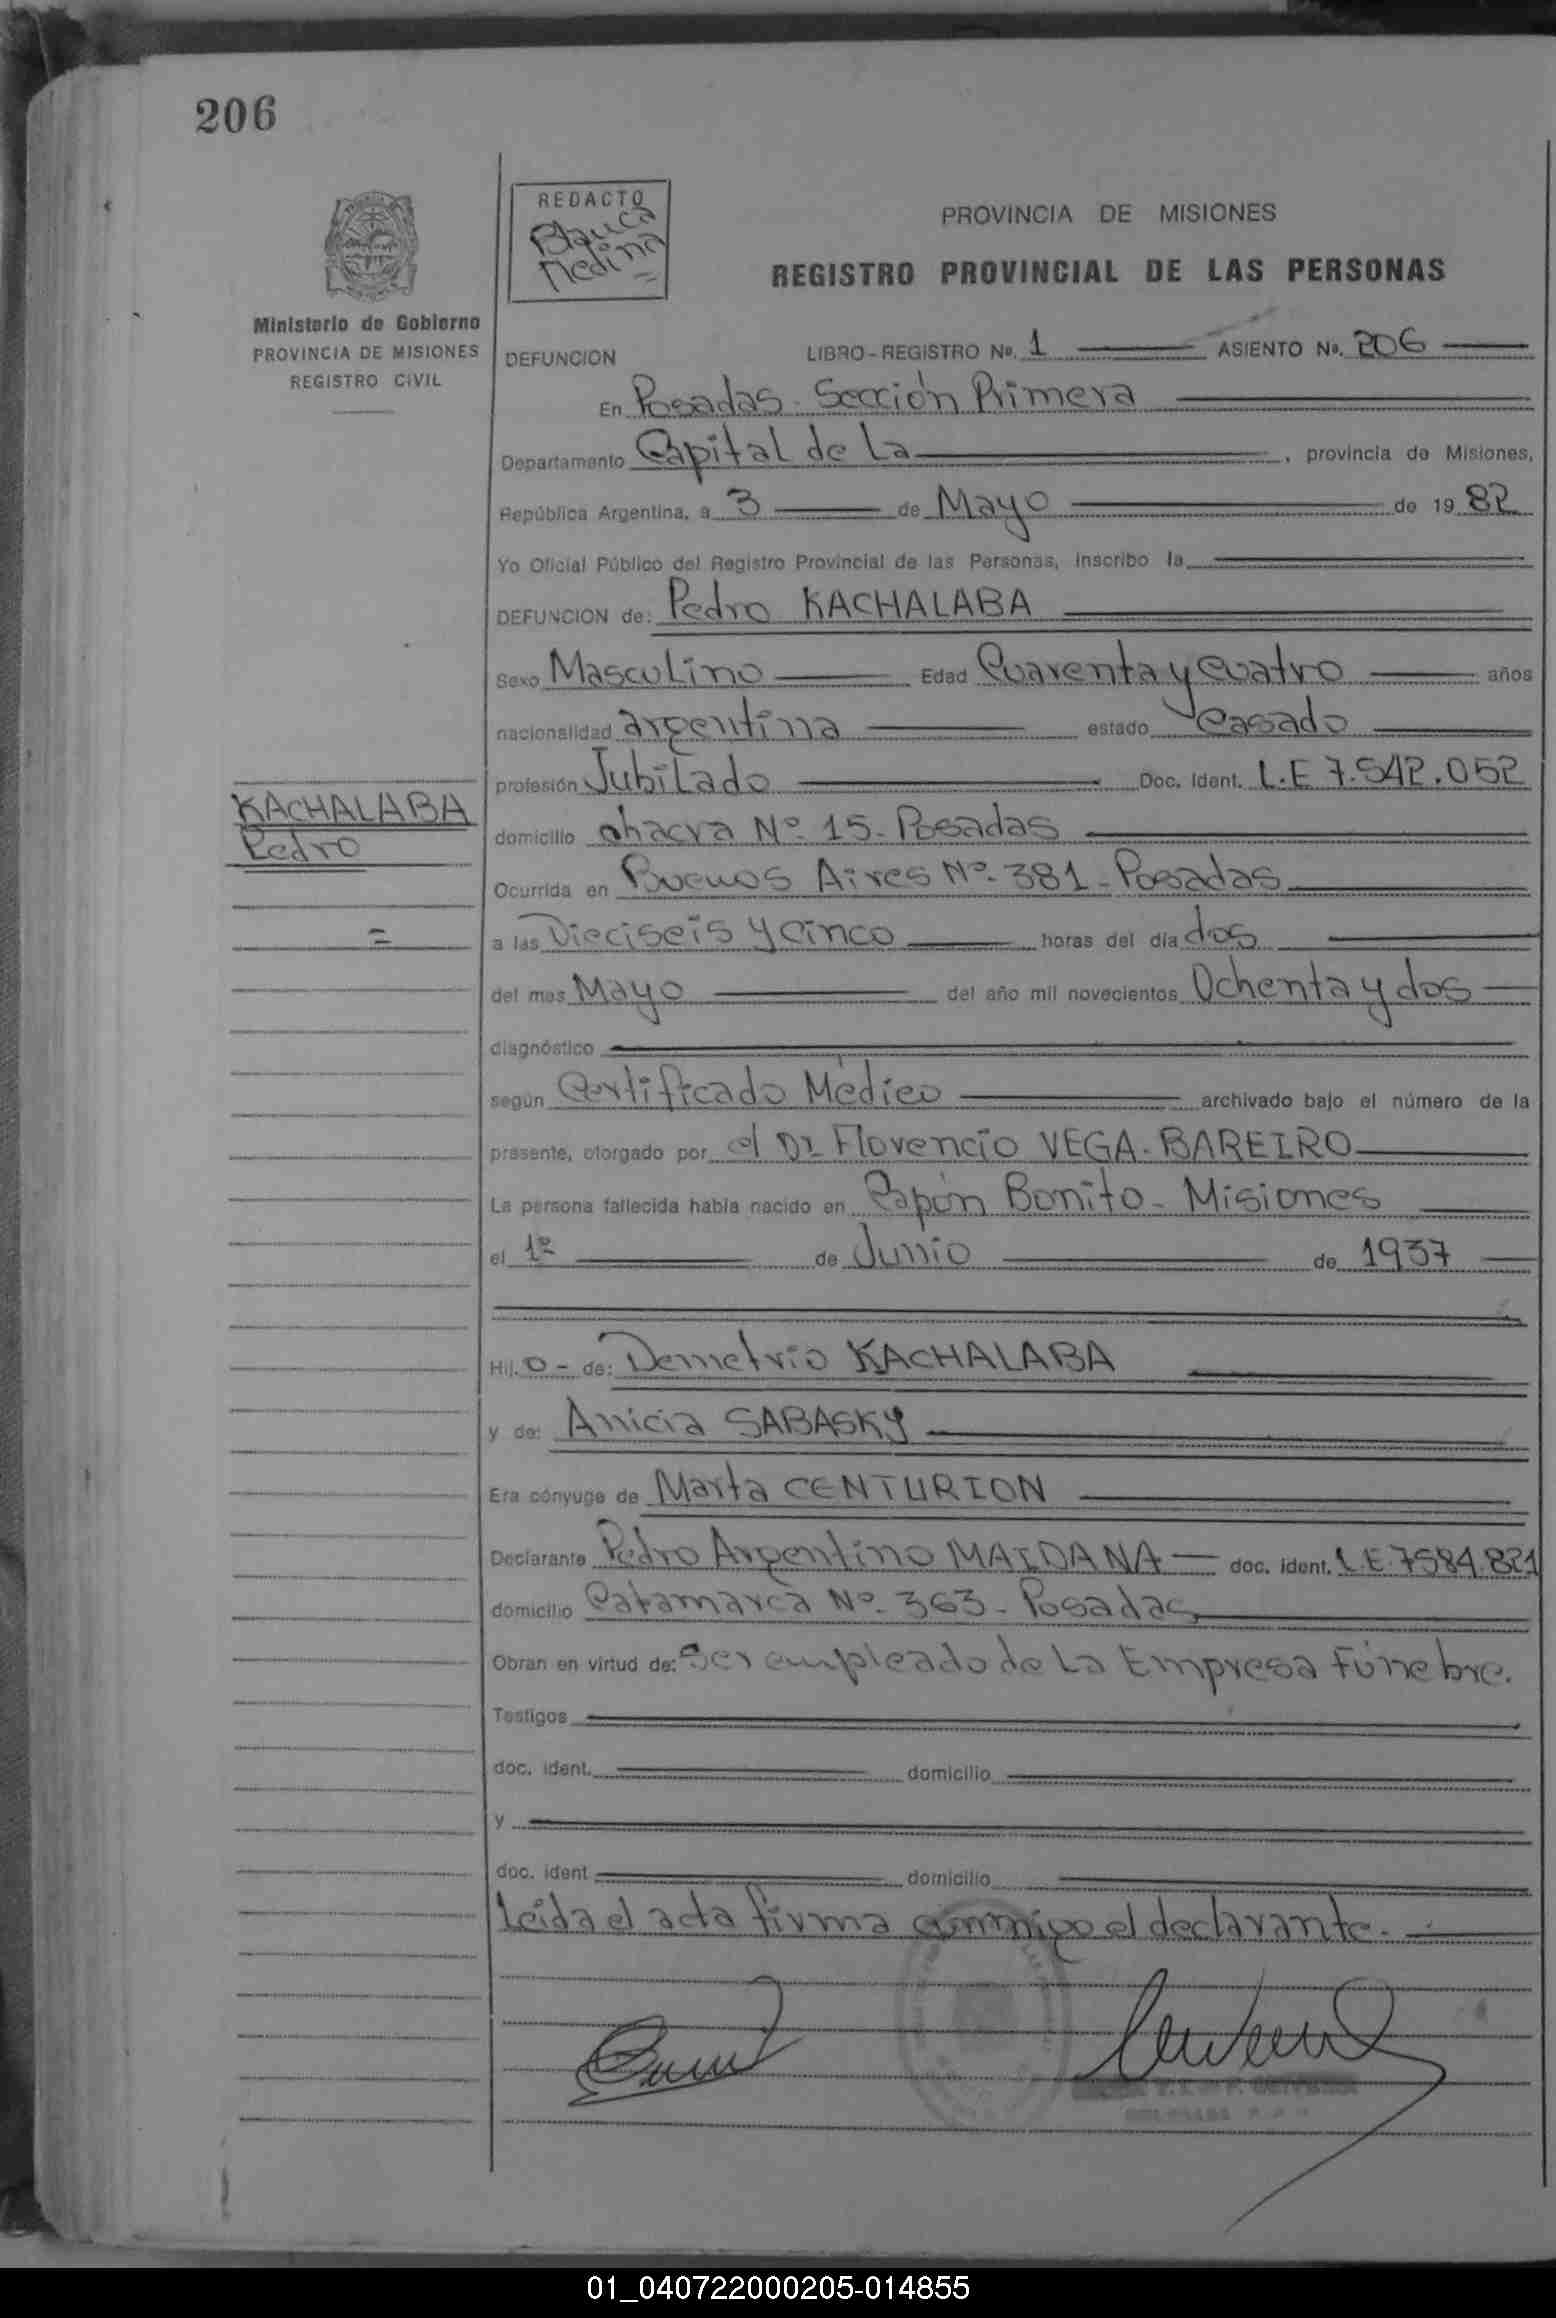 206
REDACTO
Blanca
Medina
Ministerio de Gobierno
PROVINCIA DE MISIONES
REGISTRO CIVIL
PROVINCIA DE MISIONES
REGISTRO PROVINCIAL DE LAS PERSONAS
DEFUNCION LIBRO-REGISTRO No. 1 ASIENTO No. 206
En Posadas - Sección Primera
Departamento Capital de La , provincia de Misiones,
República Argentina, a 3 de Mayo de 1982
Yo Oficial Público del Registro Provincial de las Personas, inscribo la
DEFUNCION de: Pedro KACHALABA
Sexo Masculino Edad Cuarenta y Cuatro años
nacionalidad argentina estado Casado
profesión Jubilado Doc. Ident. L.E 7.542.052
KACHALABA
Pedro
=
domicilio chacra Nº 15 - Posadas
Ocurrida en Buenos Aires Nº 381 - Posadas
a las Dieciseis y cinco horas del día dos
del mes Mayo del año mil novecientos Ochenta y dos
diagnóstico
según Certificado Médico archivado bajo el número de la
presente, otorgado por el Dr Florencio VEGA-BAREIRO
La persona fallecida había nacido en Capón Bonito - Misiones
el 1º de Junio de 1937
Hij o - de: Demetrio KACHALABA
y de: Anicia SABASKY
Era cónyuge de Marta CENTURION
Declarante Pedro Argentino MAIDANA — doc. ident. L.E. 7584.821
domicilio Catamarca Nº 363 - Posadas
Obran en virtud de: Ser empleado de La Empresa Fúnebre.
Testigos
doc. ident. domicilio
y
doc. ident domicilio
Leida el acta firma conmigo el declarante.
01_040722000205-014855